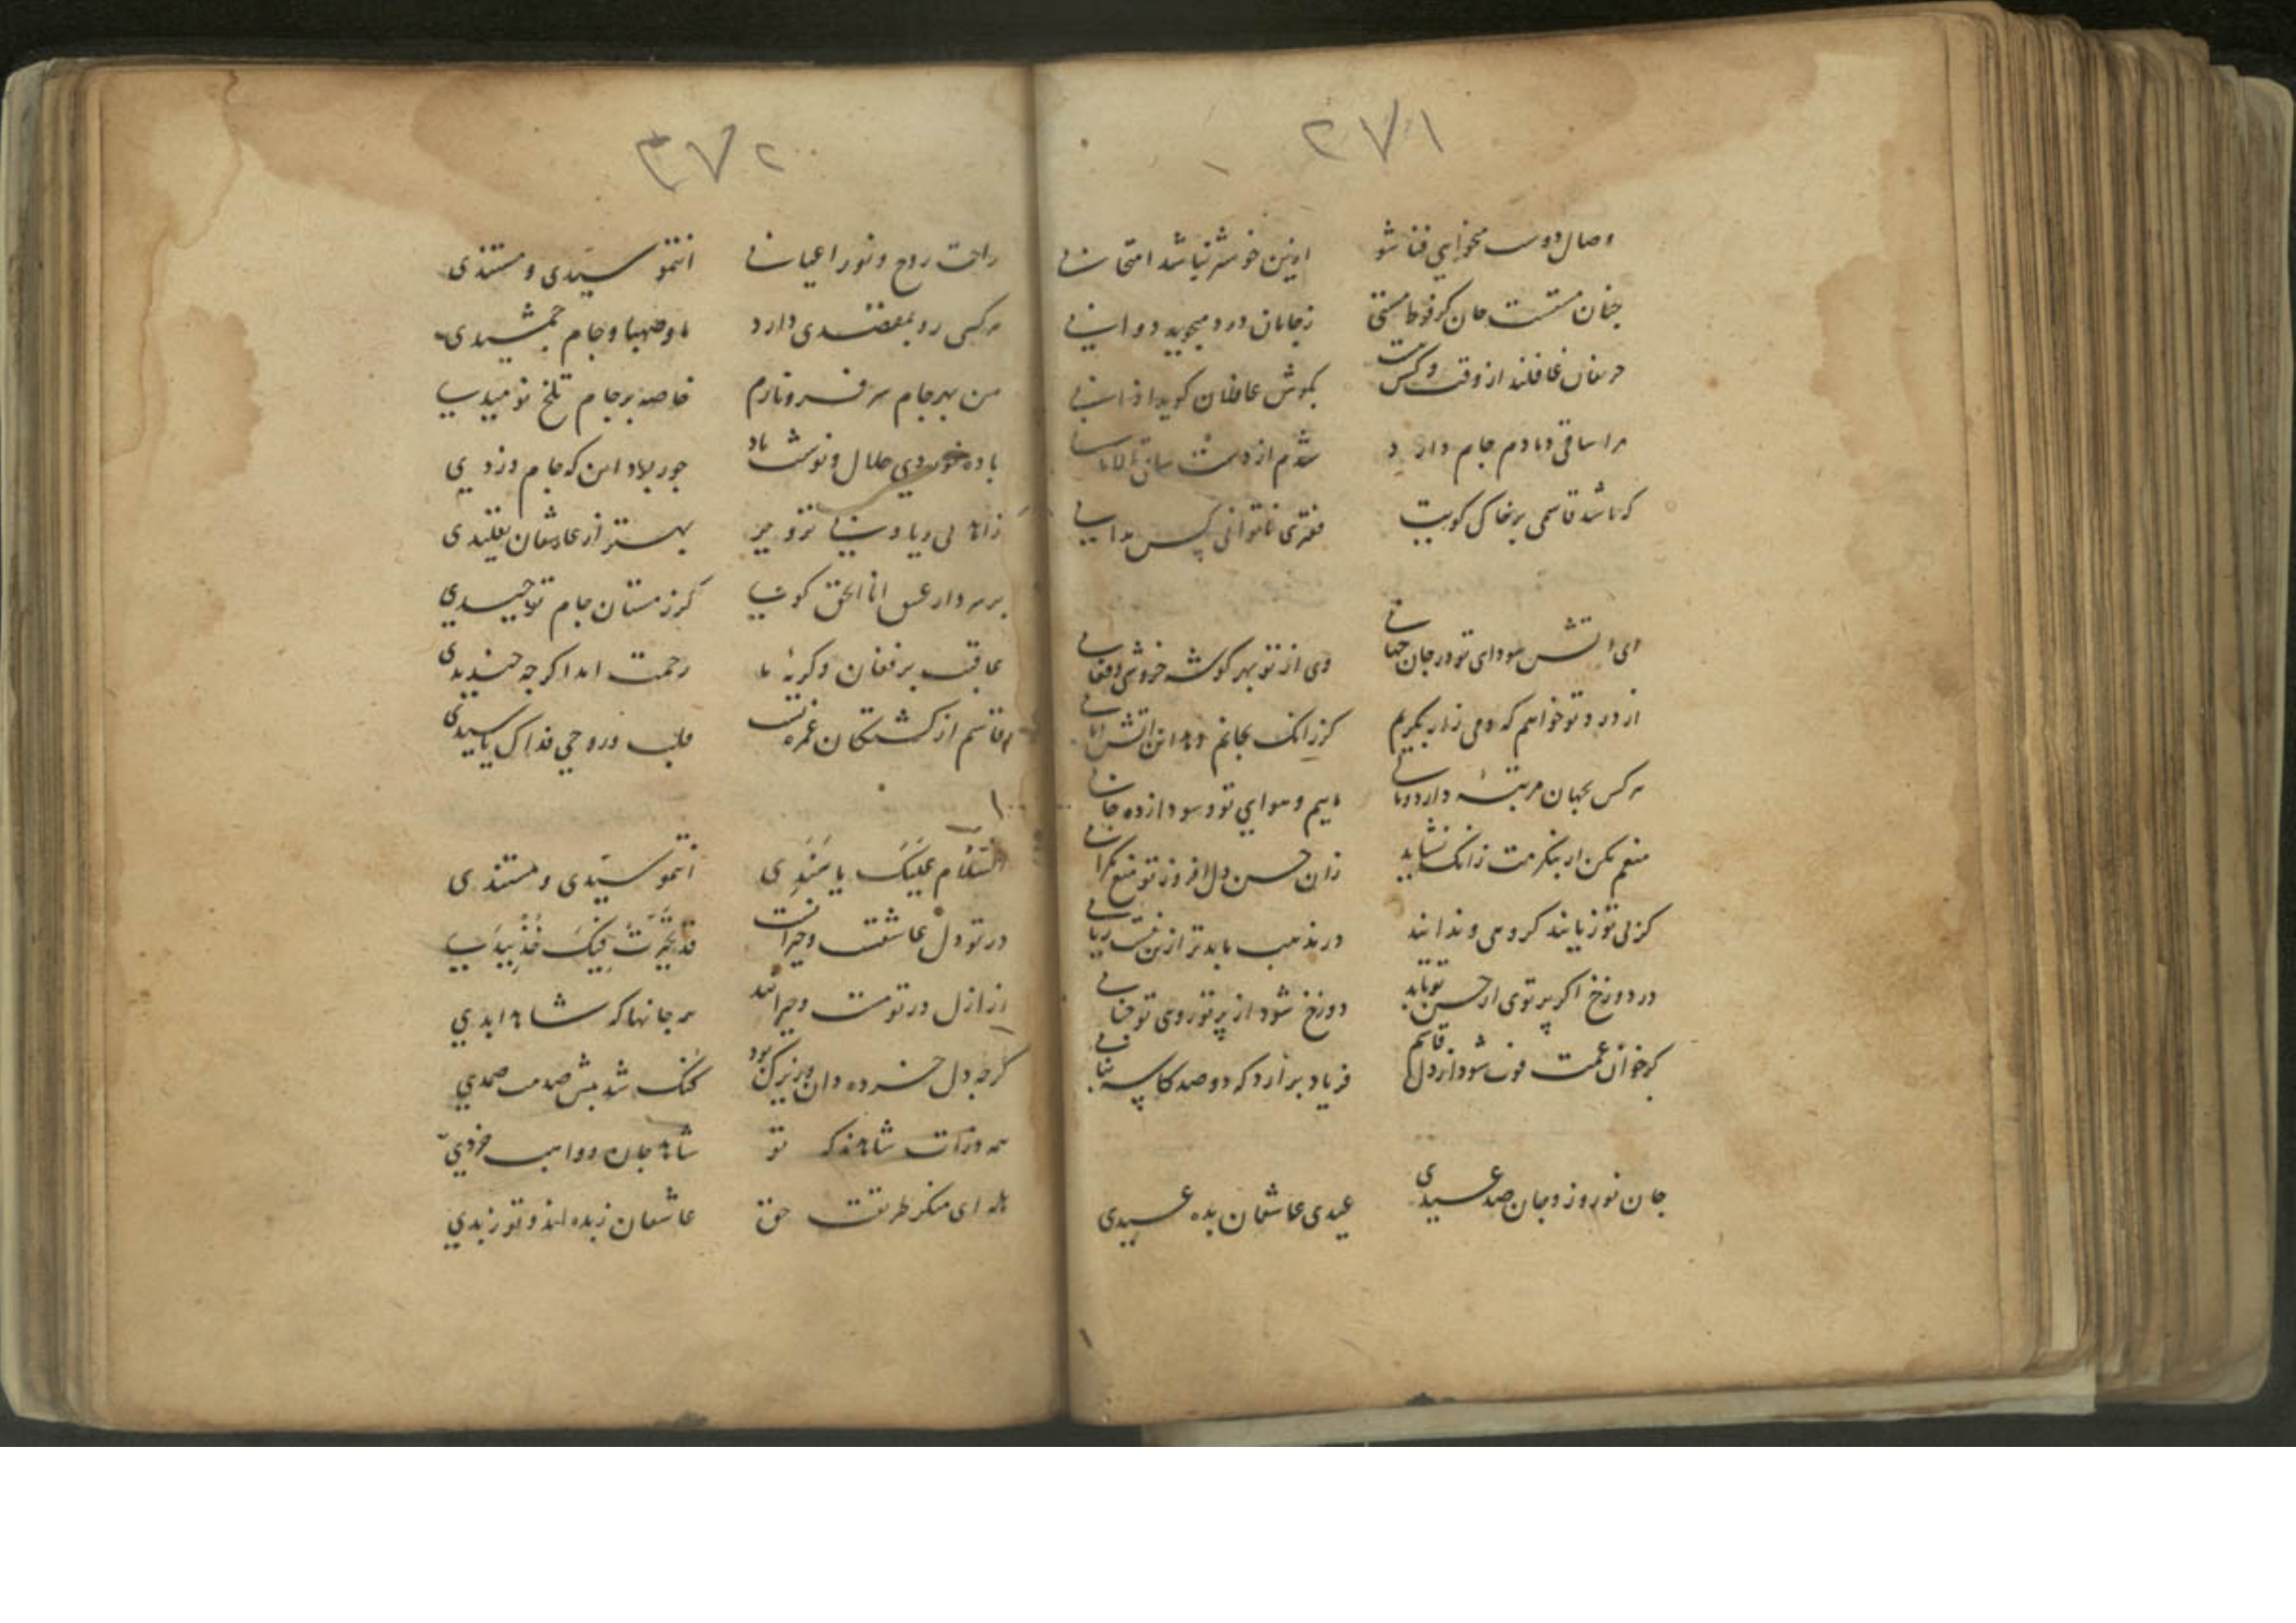 ۳۷۱
وصال دوست میخواهی فنا شو ازین خوشتر نباشد امتحانی
چنان مستست جان کز فوط مستی ز جانان درد میجوید دوا نی
حریفان غافلند از وقت و کس بکوش غافلان کوید اذانی
مرا ساقی دمادم جام دارد شدم از دست ساقی
که باشد قاسمی بر خاک کویت فقیری ناتوانی بی
ای آتش سودای تو در جان جهانی وی از تو بهر کوشه خروشی و فغانی
از درد تو خواهم که دمی زار بکریم کر زانک بجانم دهد این آتش امانی
هر کس بجهان مرتبهٔ دارد و ماییم و هوای تو و سودازده جانی
منعم مکن ار بنکرمت زانک نشاید زان حسن دل افروز تو منع نکرانی
کز بی تو زیانند کروهی و ندانند در مذهب ما بدتر ازین نیست زیانی
در دوزخ اکر پرتوی از حسن تو تابد دوزخ شود از پرتو روی تو جنانی
کر خوان غمت فوت شود از دل قاسم فریاد برآرد که دو صد کاسه
جان نوروز و جان صد عیدی عیدی عاشقان بده عیدی
۳۷۲
راحت روح و نور اعیانی انتمو سیدی و مستندی
هر کسی رو بمقصدی دارد ما و صهبا و جام جمشیدی
من بهر جام سر فرو نارم خاصه بر جام تلخ نومیدی
باده خوردی حلال و نوشت باد جور بلاد این که جام دزدی
زاهد بی ریا و بی تزویر بهتر از عاشقان تقلیدی
بر سر دار عشق انا الحق کوی کر ز مستان جام توحیدی
عاقبت بر فغان و کریهٔ ما رحمت آمد اکرچه خندیدی
قاسم از کشتکان غمزه تست قلب و روحی فداک یا سیدی
السلام علیک یا سندی انتمو سیدی و مستندی
در تو دل عاشقست و حیرانست قد تحیرت فیک خذ بیدی
از ازل در تو مست و حیرانند هر جانها که شاه ابدی
کرچه دل خرده دان و زیرک بود کنک شد پیش صدمت صمدی
همه ذرات شاهدند که تو شاه جان و واهب خردی
هله ای منکر طریقت حق عاشقان زبده اند و تو زبدی